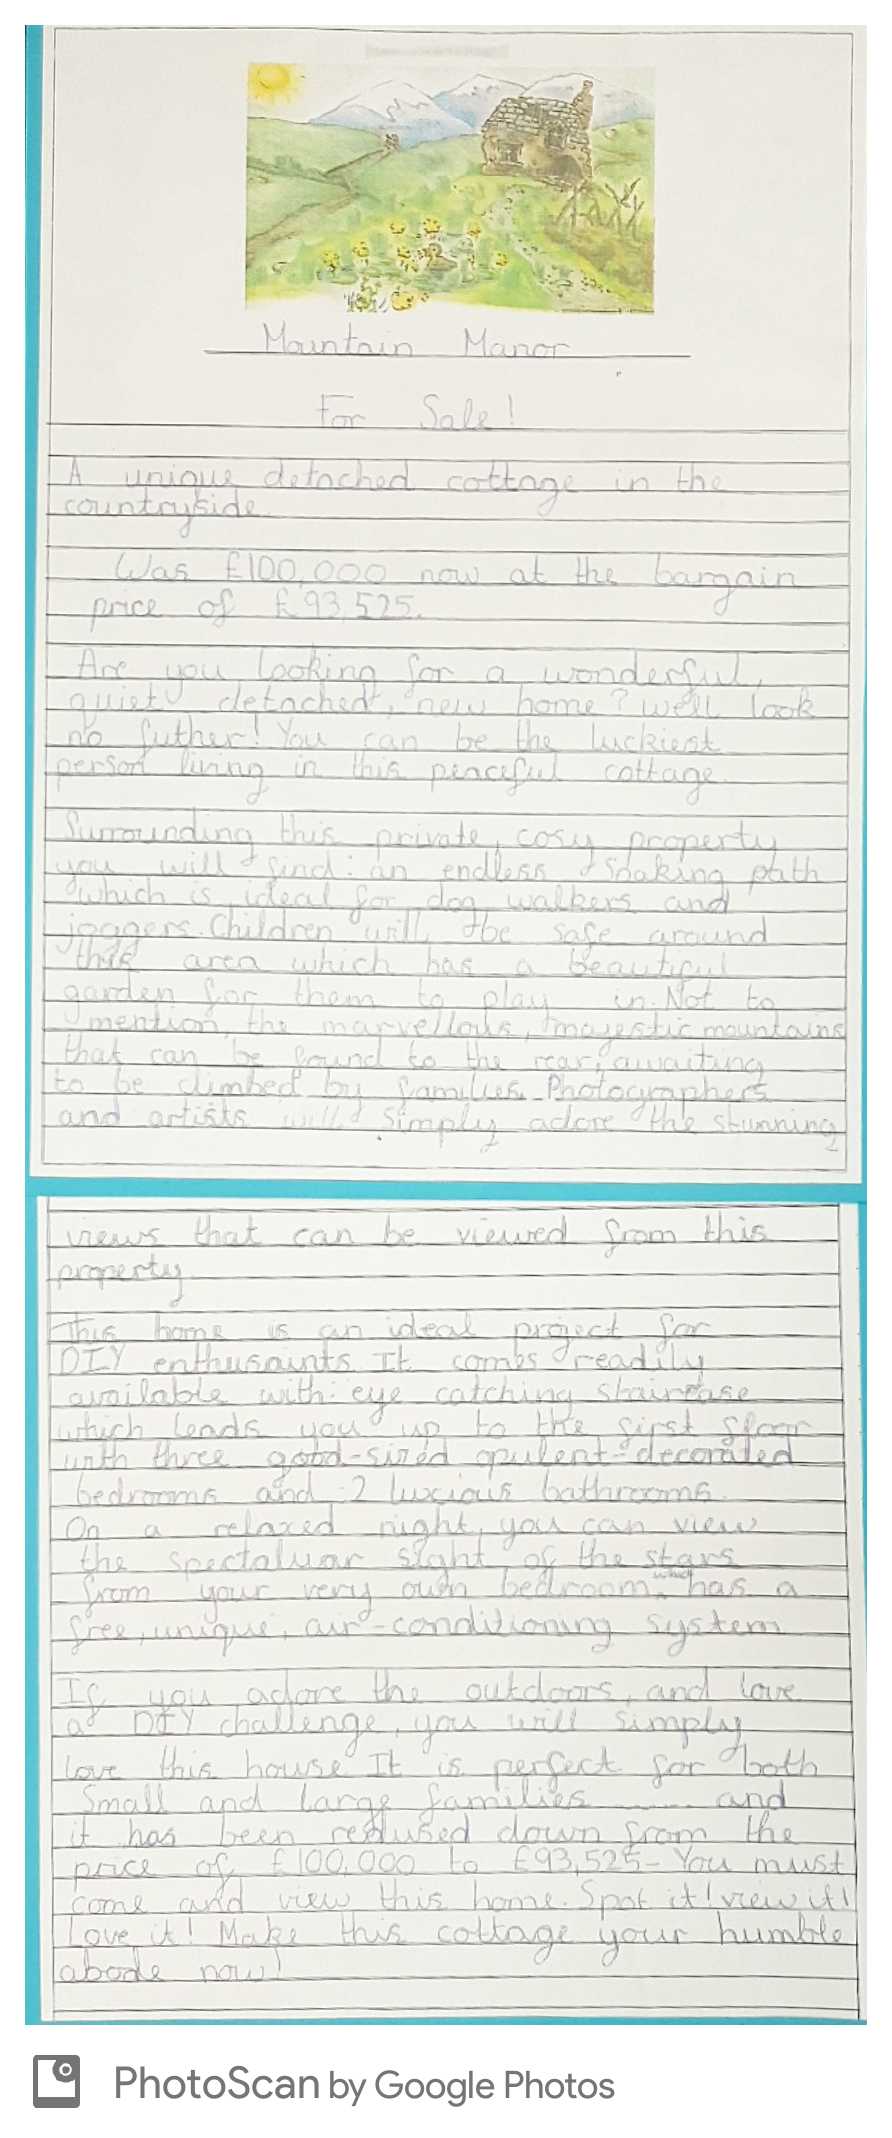 Mountain Manor
For Sale!
A unique detached cottage in the
countryside.
Was £100,000 now at the bargain
price of £93,525.
Are you looking for a wonderful,
quiet detached, new home? well look
no futher! You can be the luckiest
person living in this peaceful cottage.
Surrounding this private, cosy property
you will find: an endless snaking path
which is ideal for dog walkers and
joggers. Children will be safe around
this area which has a beautiful
garden for them to play in. Not to
mention, the marvellous, majestic mountains
that can be found to the rear; awaiting
to be climbed by families. Photographers
and artists will simply adore the stunning
views that can be viewed from this
property
This home is an ideal project for
DIY enthusaints. It comes readily
available with: eye catching staircase
which leads you up to the first floor
with three good-sized opulent-decorated
bedrooms and 2 luxcious bathrooms.
On a relaxed night, you can view
the spectaluar sight of the stars
from your very own bedroom which has a
free, unique, air-conditioning system
If you adore the outdoors, and love
a DIY challenge, you will simply
love this house It is perfect for both
small and large families and
it has been redused down from the
price of £100,000 to £93,525- You must
come and view this home. Spot it! view it!
Love it! Make this cottage your humble
abode now!
PhotoScan by Google Photos